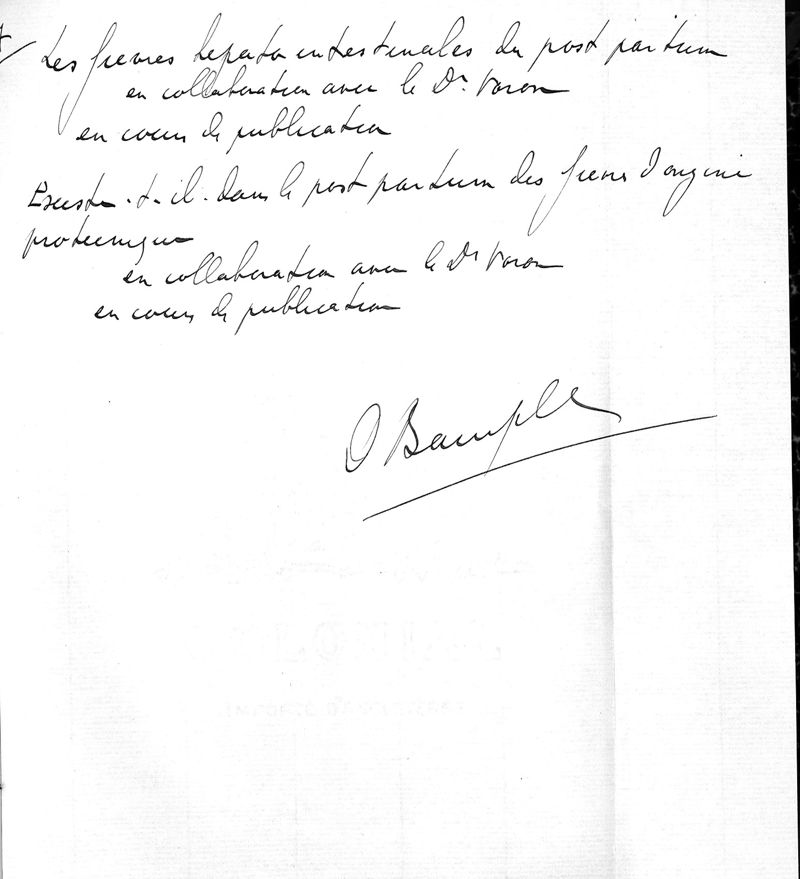 Les fièvres hepato intestinales du post partum
en collaboration avec le Dr. Voron
en cours de publication
Existe-t-il dans le post partum des fièvres d'origine
proteinique
en collaboration avec le Dr Voron
en cours de publication